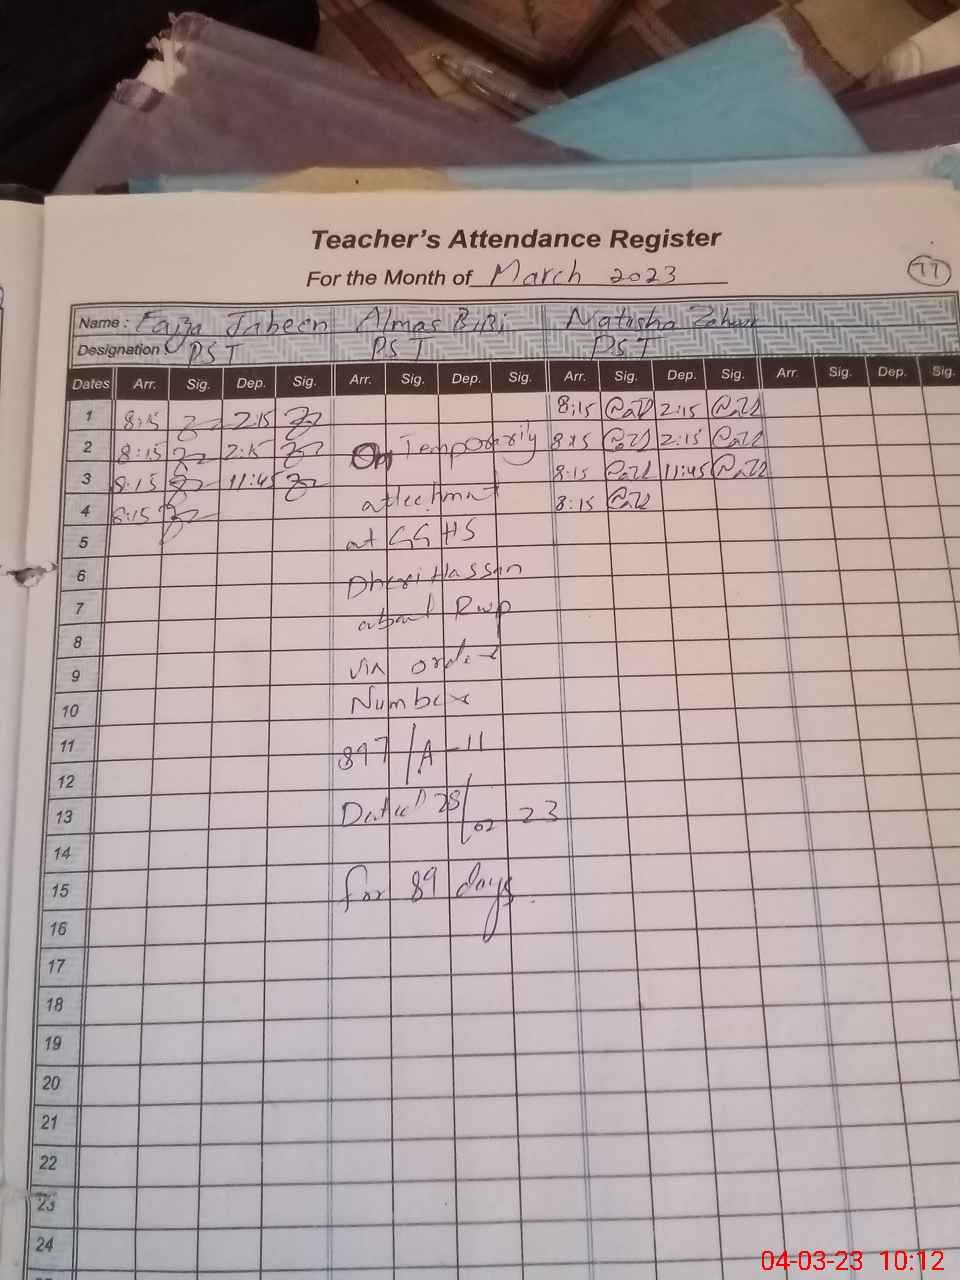 Teacher's Attendance Register
For the Month of March 2023
77
Name: Faiza Jabeen Almas BiBi Natasha
Designation: PST PST PST
Dates Arr. Sig. Dep. Sig. Arr. Sig. Dep. Sig. Arr. Sig. Dep. Sig. Arr. Sig. Dep. Sig.
1 8:15 2:15 8:15 2:15
2 8:15 2:15 On Temporarily 8:15 2:15
3 8:15 11:45 8:15 11:45
4 8:15 attechmnt 8:15
5 at GGHS
6 Dheri Hassan
7 Rwp
8
9 via order
10 Number
11 897/A-11
12
13 Dated 28/02 23
14
15 for 89 days.
16
17
18
19
20
21
22
23
24
04-03-23 10:12